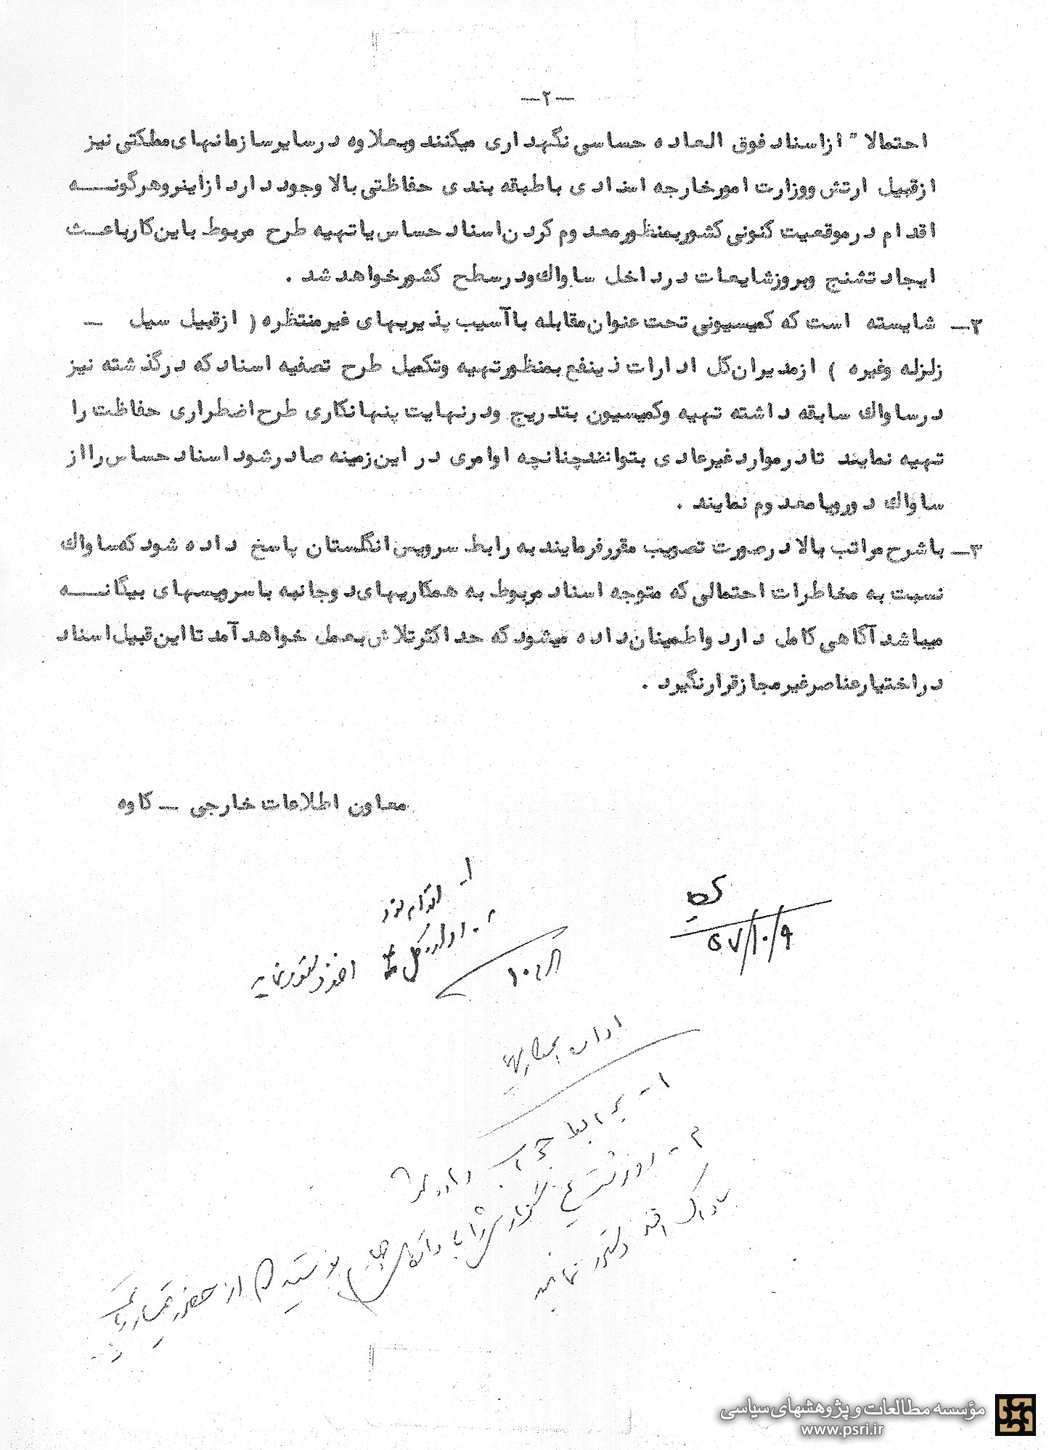 —۲—
احتمالا" از اسناد فوق العاده حساسی نگهداری میکنند وبعلاوه در سایر سازمانهای مملکتی نیز
ازقبیل ارتش ووزارت امورخارجه اسنادی باطبقه بندی حفاظتی بالا وجود دارد ازاینرو هرگونه
اقدام درموقعیت کنونی کشور بمنظور معدوم کردن اسناد حساس یا تهیه طرح مربوط باین کار باعث
ایجاد تشنج وبروز شایعات در داخل ساواك ودر سطح کشور خواهد شد .
۲— شایسته است که کمیسیونی تحت عنوان مقابله با آسیب پذیریهای غیرمنتظره ( ازقبیل سیل —
زلزله وغیره ) ازمدیران کل ادارات ذینفع بمنظور تهیه وتکمیل طرح تصفیه اسناد که درگذشته نیز
درساواك سابقه داشته تهیه وکمیسیون بتدریج ودرنهایت پنهانکاری طرح اضطراری حفاظت را
تهیه نمایند تا در موارد غیرعادی بتوانند چنانچه اوامری در این زمینه صادر شود اسناد حساس را از
ساواك دور ویا معدوم نمایند .
۳— باشرح مراتب بالا درصورت تصویب مقرر فرمایند به رابط سرویس انگلستان پاسخ داده شود که ساواك
نسبت به مخاطرات احتمالی که متوجه اسناد مربوط به همکاریهای دوجانبه با سرویسهای بیگانه
میباشد آگاهی کامل دارد واطمینان داده میشود که حداکثر تلاش بعمل خواهد آمد تا این قبیل اسناد
در اختیار عناصر غیرمجاز قرار نگیرد .
معاون اطلاعات خارجی — کاوه
۵۷/۱۰/۹
۱- اقدام شود
۲- اداره کل
۱- به رابط جواب داده شد
۲-
مؤسسه مطالعات و پژوهشهای سیاسی
www.psri.ir